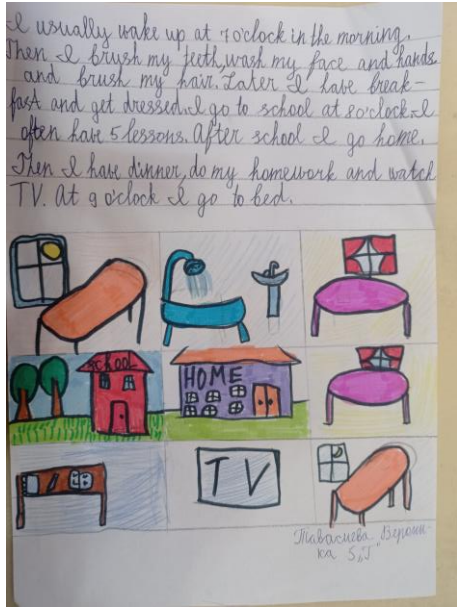 I usually wake up at 7 o'clock in the morning.
Then I brush my teeth, wash my face and hands
and brush my hair. Later I have break-
fast and get dressed. I go to school at 8 o'clock. I
often have 5 lessons. After school I go home.
Then I have dinner, do my homework and watch
TV. At 9 o'clock I go to bed.
School
HOME
TV
Тавасиева Верони-
ка 5„Г"